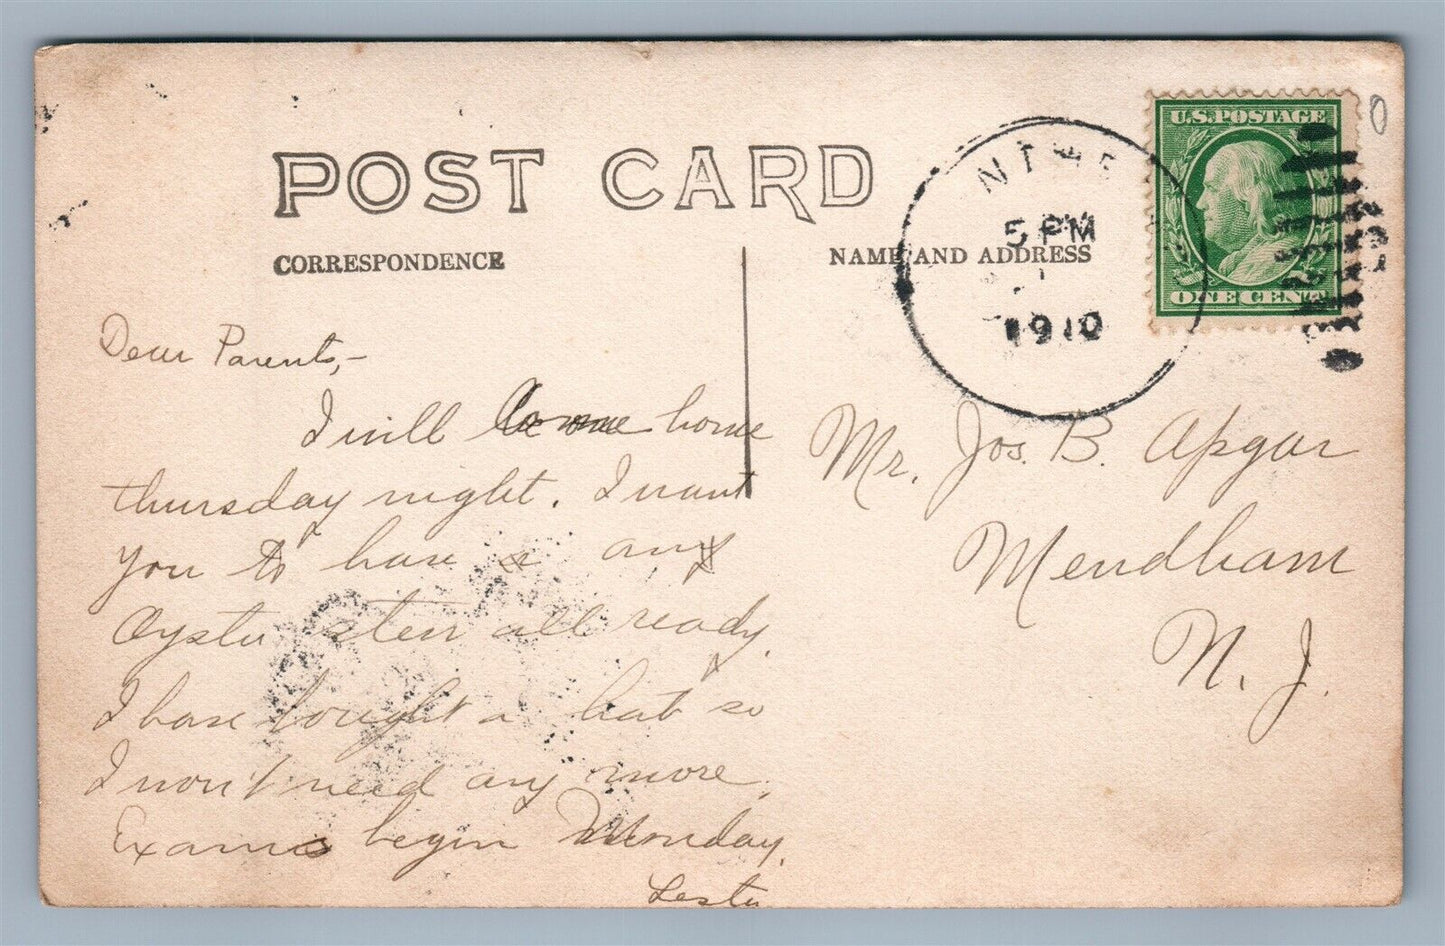 POST CARD
CORRESPONDENCE
NAME AND ADDRESS
5 PM
1910
U.S. POSTAGE
ONE CENT
0
Dear Parents,-
I will come home
thursday night. I want
you to have a any
Oyster stew all ready.
I have bought a hat so
I won't need any more.
Exams begin Monday.
Lester
Mr. Jos. B. Apgar
Mendham
N. J.